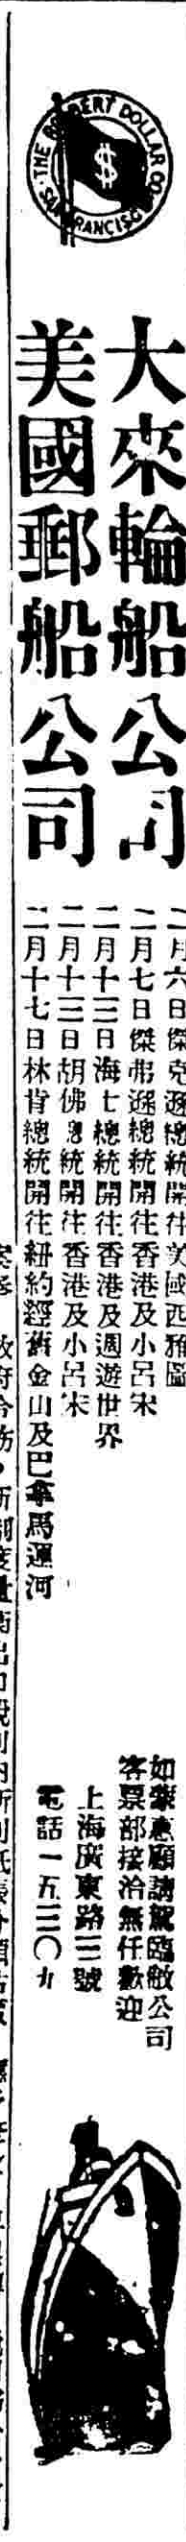 THE ROBERT DOLLAR CO
SAN FRANCISCO
$
大來輪船公司
美國郵船公司
二月六日傑克遜總統開往美國西雅圖
二月七日傑弗遜總統開往香港及小呂宋
二月十三日海士總統開往香港及週遊世界
二月十三日胡佛總統開往香港及小呂宋
二月十七日林肯總統開往紐約經舊金山及巴拿馬運河
如蒙惠顧請駕臨敝公司
客票部接洽無任歡迎
上海廣東路三號
電話一五三〇九